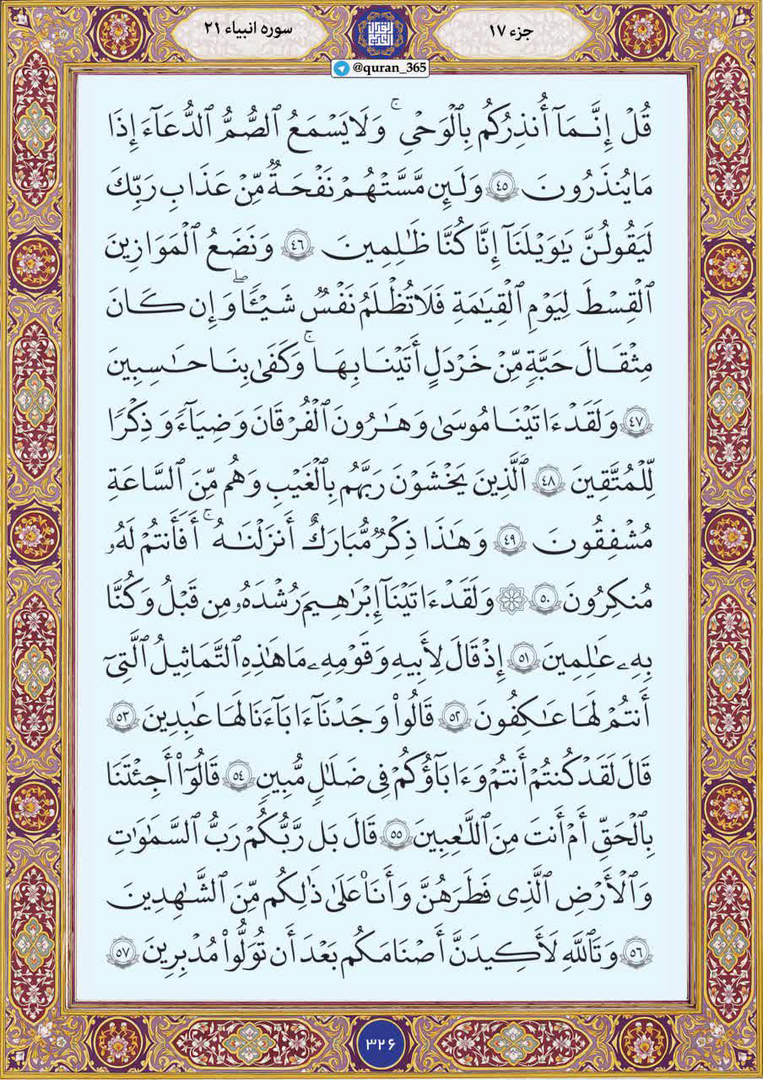 جزء ۱۷
سوره انبیاء ۲۱
@quran_365
قُلْ إِنَّمَآ أُنذِرُكُم بِٱلْوَحْىِ ۚ وَلَا يَسْمَعُ ٱلصُّمُّ ٱلدُّعَآءَ إِذَا
مَا يُنذَرُونَ ٤٥ وَلَئِن مَّسَّتْهُمْ نَفْحَةٌ مِّنْ عَذَابِ رَبِّكَ
لَيَقُولُنَّ يَٰوَيْلَنَآ إِنَّا كُنَّا ظَٰلِمِينَ ٤٦ وَنَضَعُ ٱلْمَوَٰزِينَ
ٱلْقِسْطَ لِيَوْمِ ٱلْقِيَٰمَةِ فَلَا تُظْلَمُ نَفْسٌ شَيْـًٔا ۖ وَإِن كَانَ
مِثْقَالَ حَبَّةٍ مِّنْ خَرْدَلٍ أَتَيْنَا بِهَا ۗ وَكَفَىٰ بِنَا حَٰسِبِينَ
٤٧ وَلَقَدْ ءَاتَيْنَا مُوسَىٰ وَهَٰرُونَ ٱلْفُرْقَانَ وَضِيَآءً وَذِكْرًا
لِّلْمُتَّقِينَ ٤٨ ٱلَّذِينَ يَخْشَوْنَ رَبَّهُم بِٱلْغَيْبِ وَهُم مِّنَ ٱلسَّاعَةِ
مُشْفِقُونَ ٤٩ وَهَٰذَا ذِكْرٌ مُّبَارَكٌ أَنزَلْنَٰهُ ۚ أَفَأَنتُمْ لَهُۥ
مُنكِرُونَ ٥٠ ۞ وَلَقَدْ ءَاتَيْنَآ إِبْرَٰهِيمَ رُشْدَهُۥ مِن قَبْلُ وَكُنَّا
بِهِۦ عَٰلِمِينَ ٥١ إِذْ قَالَ لِأَبِيهِ وَقَوْمِهِۦ مَا هَٰذِهِ ٱلتَّمَاثِيلُ ٱلَّتِىٓ
أَنتُمْ لَهَا عَٰكِفُونَ ٥٢ قَالُوا۟ وَجَدْنَآ ءَابَآءَنَا لَهَا عَٰبِدِينَ ٥٣
قَالَ لَقَدْ كُنتُمْ أَنتُمْ وَءَابَآؤُكُمْ فِى ضَلَٰلٍ مُّبِينٍ ٥٤ قَالُوٓا۟ أَجِئْتَنَا
بِٱلْحَقِّ أَمْ أَنتَ مِنَ ٱللَّٰعِبِينَ ٥٥ قَالَ بَل رَّبُّكُمْ رَبُّ ٱلسَّمَٰوَٰتِ
وَٱلْأَرْضِ ٱلَّذِى فَطَرَهُنَّ وَأَنَا۠ عَلَىٰ ذَٰلِكُم مِّنَ ٱلشَّٰهِدِينَ
٥٦ وَتَٱللَّهِ لَأَكِيدَنَّ أَصْنَٰمَكُم بَعْدَ أَن تُوَلُّوا۟ مُدْبِرِينَ ٥٧
۳۲۶